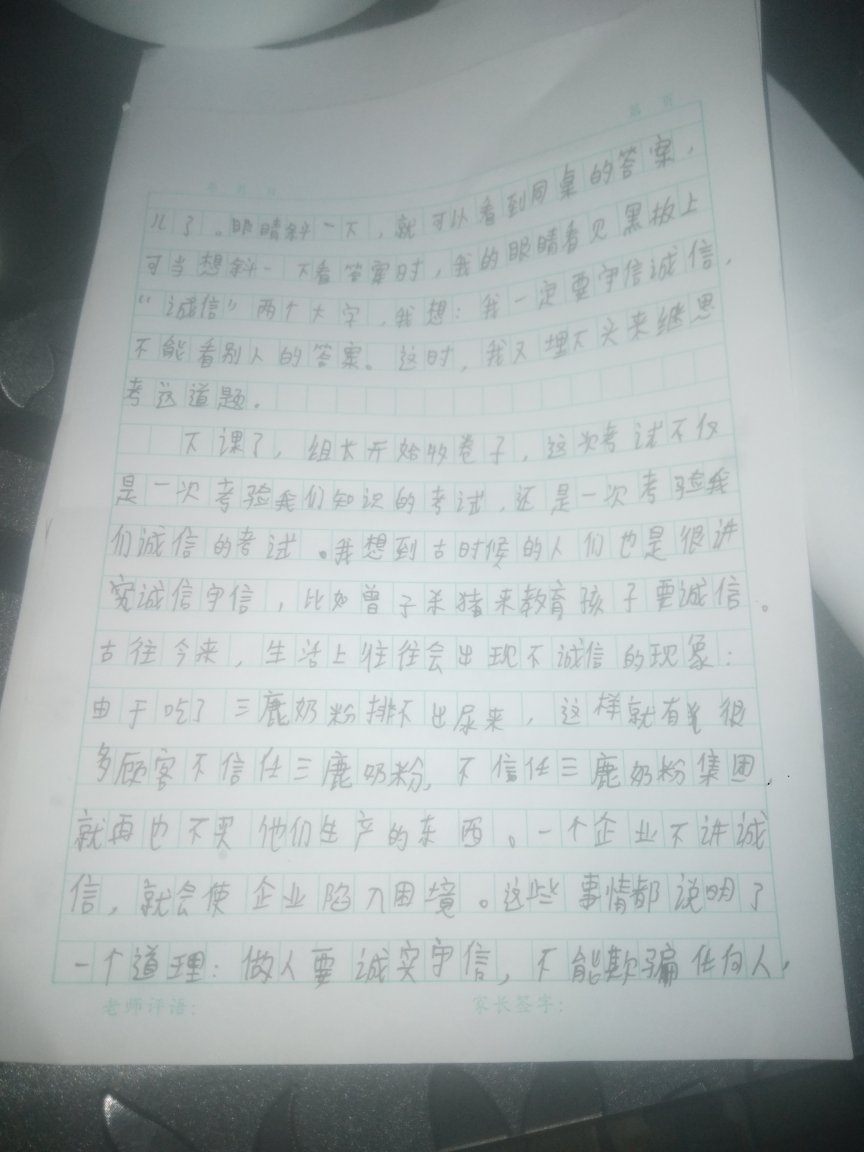 第 页
年 月 日
儿了。眼睛斜一下，就可以看到同桌的答案，
可当想斜一下看答案时，我的眼睛看见黑板上
“诚信”两个大字，我想：我一定要守信诚信，
不能看别人的答案。这时，我又埋下头来继思
考这道题。
下课了，组长开始收卷子，这次考试不仅
是一次考验我们知识的考试，还是一次考验我
们诚信的考试。我想到古时候的人们也是很讲
究诚信守信，比如曾子杀猪来教育孩子要诚信。
古往今来，生活上往往会出现不诚信的现象：
由于吃了三鹿奶粉排不出尿来，这样就有 很
多顾客不信任三鹿奶粉，不信任三鹿奶粉集团，
就再也不买他们生产的东西。一个企业不讲诚
信，就会使企业陷入困境。这些事情都说明了
一个道理：做人要诚实守信，不能欺骗任何人，
老师评语： 家长签字：